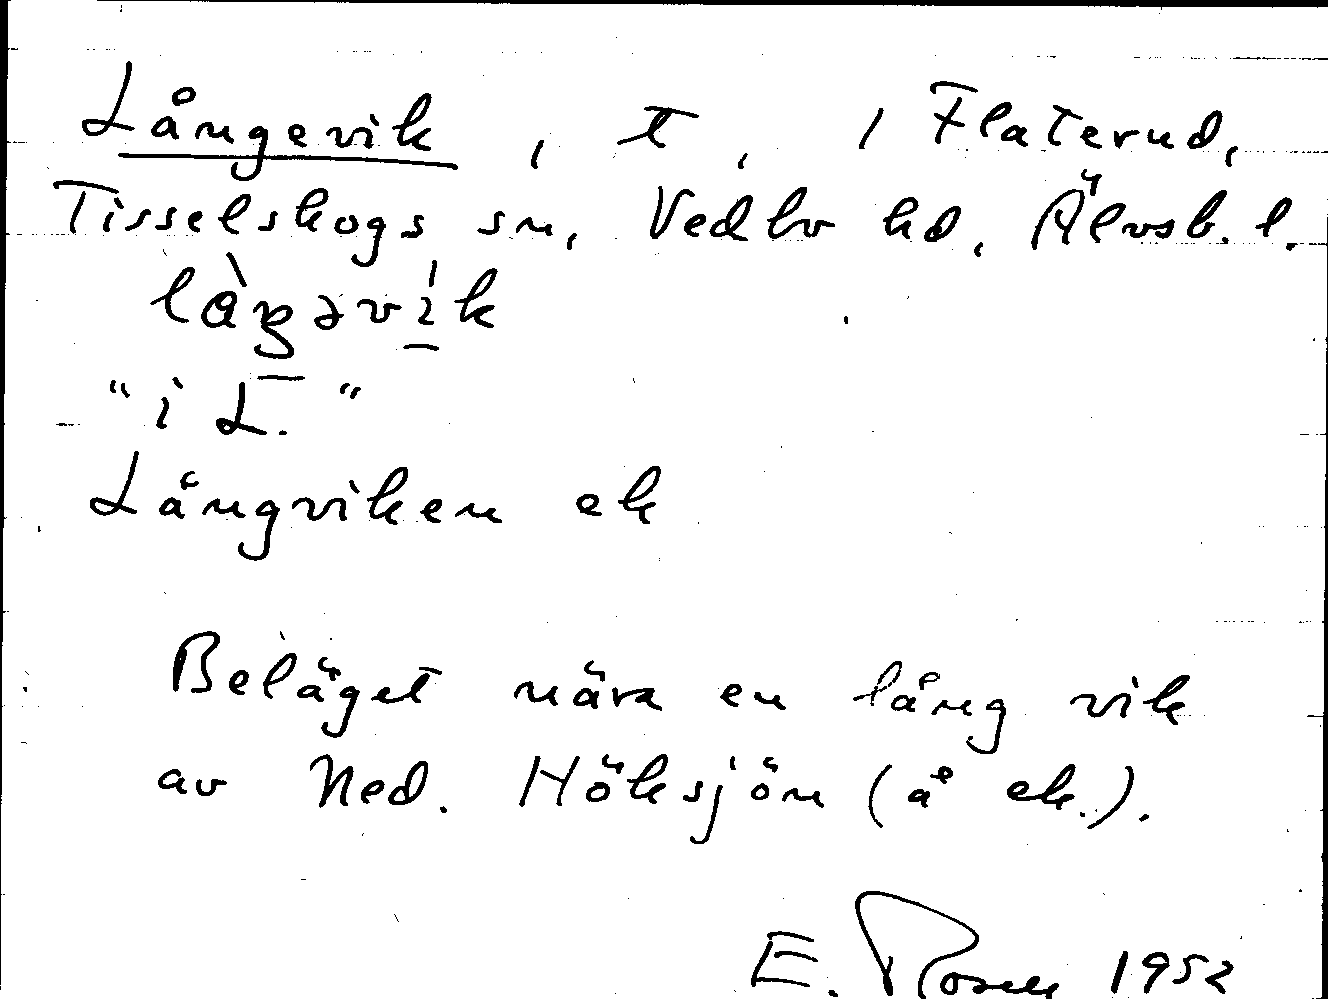 Långevik, t, i Flaterud,
Tisselskogs sn, Vedbo hd, Älvsb. l.
"i L."
Långviken ek
Beläget nära en lång vik
av Ned. Höksjön (å ek.).
E. Rosen 1952